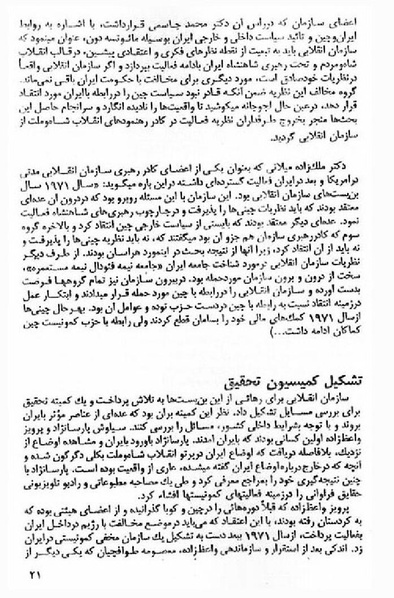 اعضای سازمان که درراس آن دکتر محمد جاسمی قرارداشت، با اشاره به روابط
ایران و چین و تائید سیاست داخلی و خارجی ایران بوسیله مائوتسه دون، عنوان مینمود که
سازمان انقلابی باید به تبعیت از نقطه نظرهای فکری و اعتقادی پیشین، درقالب انقلاب
شاه ومردم و تحت رهبری شاهنشاه ایران بادامه فعالیت بپردازد و اگر سازمان انقلابی واقعاً
درنظریات خودصادق است، مورد دیگری برای مخالفت با حکومت ایران باقی نمی‌ماند.
گروه مخالف این نظریه ضمن آنکه قادر نبود سیاست چین را دررابطه باایران مورد انتقاد
قرار دهد، درعین حال لجوجانه میکوشید تا واقعیت‌ها را نادیده انگارد و سرانجام حاصل این
بحث‌ها منجر بخروج طرفداران نظریه فعالیت در کادر رهنمودهای انقلاب شاه‌وملت از
سازمان انقلابی گردید.
دکتر ملک‌زاده میلانی که بعنوان یکی از اعضای کادر رهبری سازمان انقلابی مدتی
درامریکا و بعد درایران فعالیت گسترده‌ای داشته دراین باره میگوید: «ـ سال ۱۹۷۱ سال
بن‌بست‌های سازمان انقلابی بود. این سازمان با این مسئله روبرو بود که دردرون آن عده‌ای
معتقد بودند که باید نظریات چینی‌ها را پذیرفت و درچارچوب رهبری‌های شاهنشاه فعالیت
نمود. عده‌ای دیگر معتقد بودند که بایستی از سیاست خارجی چین انتقاد کرد و بالاخره گروه
سوم که کادررهبری سازمان هم جزو آن بود میگفتند که، نه باید نظریه چینی‌ها را پذیرفت و
نه باید از آن انتقاد کرد، زیرا آنها از نتیجه بحث در اینمورد هراسان بودند. از طرف دیگر
نظریات سازمان انقلابی درمورد شناخت جامعه ایران «جامعه نیمه فئودال نیمه مستعمره»،
سخت از درون و برون سازمان موردحمله بود. دربیرون سازمان نیز تمام گروهها فرصت
بدست آورده و سازمان انقلابی را دررابطه با چین مورد حمله قرار میدادند و ابتکار عمل
درزمینه انتقاد نسبت به رابطه با چین دردست حزب توده و عوامل آن بود. بهر حال چینی‌ها
ازسال ۱۹۷۱ کمک‌های مالی خود را بسامان قطع کردند ولی رابطه با حزب کمونیست چین
کماکان ادامه داشت...)
تشکیل کمیسیون تحقیق
سازمان انقلابی برای رهائی از این بن‌بست‌ها به تلاش پرداخت و یک کمیته تحقیق
برای بررسی مسایل تشکیل داد. نظر این کمیته بران بود که عده‌ای از عناصر مؤثر بایران
بروند و با توجه بشرایط داخلی کشور، مسائل را بررسی کنند. سیاوش پارسانژاد و پرویز
واعظ‌زاده اولین کسانی بودند که بایران آمدند. پارسانژاد باورود بایران و مشاهده اوضاع از
نزدیک، بلافاصله دریافت که اوضاع ایران درپرتو انقلاب شاه‌وملت بکلی دگرگون شده و
آنچه که درخارج درباره اوضاع ایران گفته میشده، عاری از واقعیت بوده است. پارسانژاد با
چنین نتیجه‌گیری خود را بمراجع معرفی کرد و طی یک مصاحبه مطبوعاتی و رادیو تلویزیونی
حقایق فراوانی را درزمینه فعالیتهای کمونیستها افشاء کرد.
پرویز واعظ‌زاده که قبلاً دوره‌هائی را درچین و کوبا گذرانیده و از اعضای هیئتی بوده که
به کردستان رفته بودند، با این اعتقاد که می‌باید درموضع مخالفت با رژیم درداخل ایران
بفعالیت پرداخت، ازسال ۱۹۷۱ ببعد دست به تشکیل یک سازمان مخفی کمونیستی درایران
زد. اندکی بعد از استقرار و سازماندهی واعظ‌زاده، معصومه طوافچیان که یکی دیگر از
۲۱